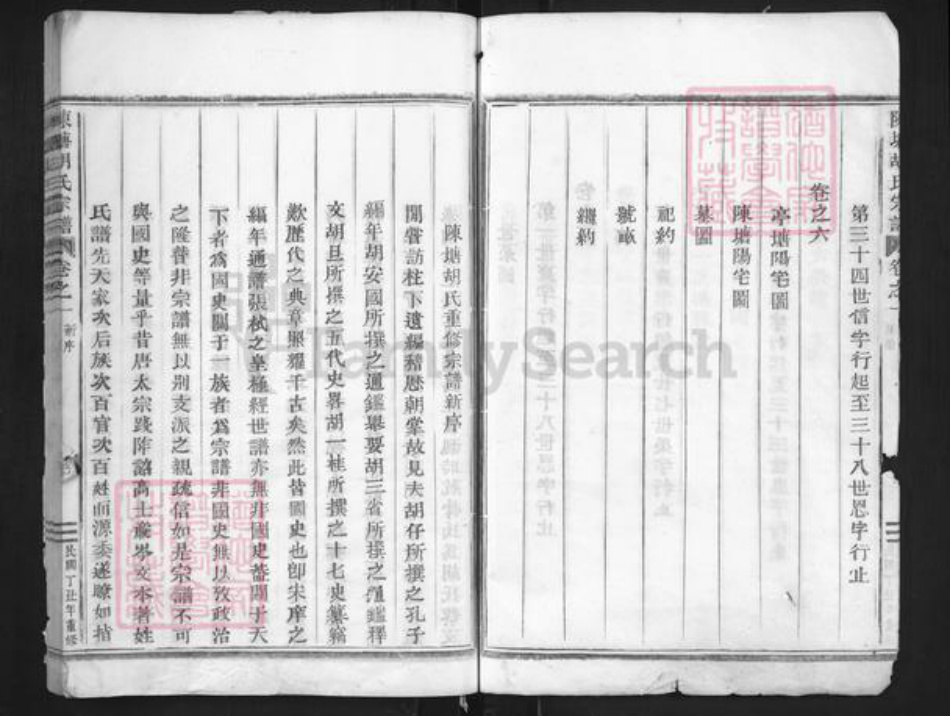 第三十四世信字行起至三十八世恩字行止
卷之六
亭塘陽宅圖
陳塘陽宅圖
墓圖
祀約
號畝
纘約
陳塘胡氏重修宗譜新序
閒嘗訪柱下遺編稽歷朝掌故見夫胡仔所撰之孔子
編年胡安國所撰之通鑑舉要胡三省所撰之通鑑釋
文胡旦所撰之五代史畧胡一桂所撰之十七史纂竊
歎歷代之典章照耀千古矣然此皆國史也卽宋庠之
編年通譜張栻之皇極經世譜亦無非國史蓋關于天
下者爲國史關于一族者爲宗譜非國史無以攷政治
之隆替非宗譜無以別支派之親疏信如是宗譜不可
與國史等量乎昔唐太宗踐阼詔高士廉岑文本著姓
氏譜先天家次后族次百官次百姓而源委遂瞭如指
陳塘胡氏宗譜
卷之一
新序
民國丁丑年重修
FamilySearch